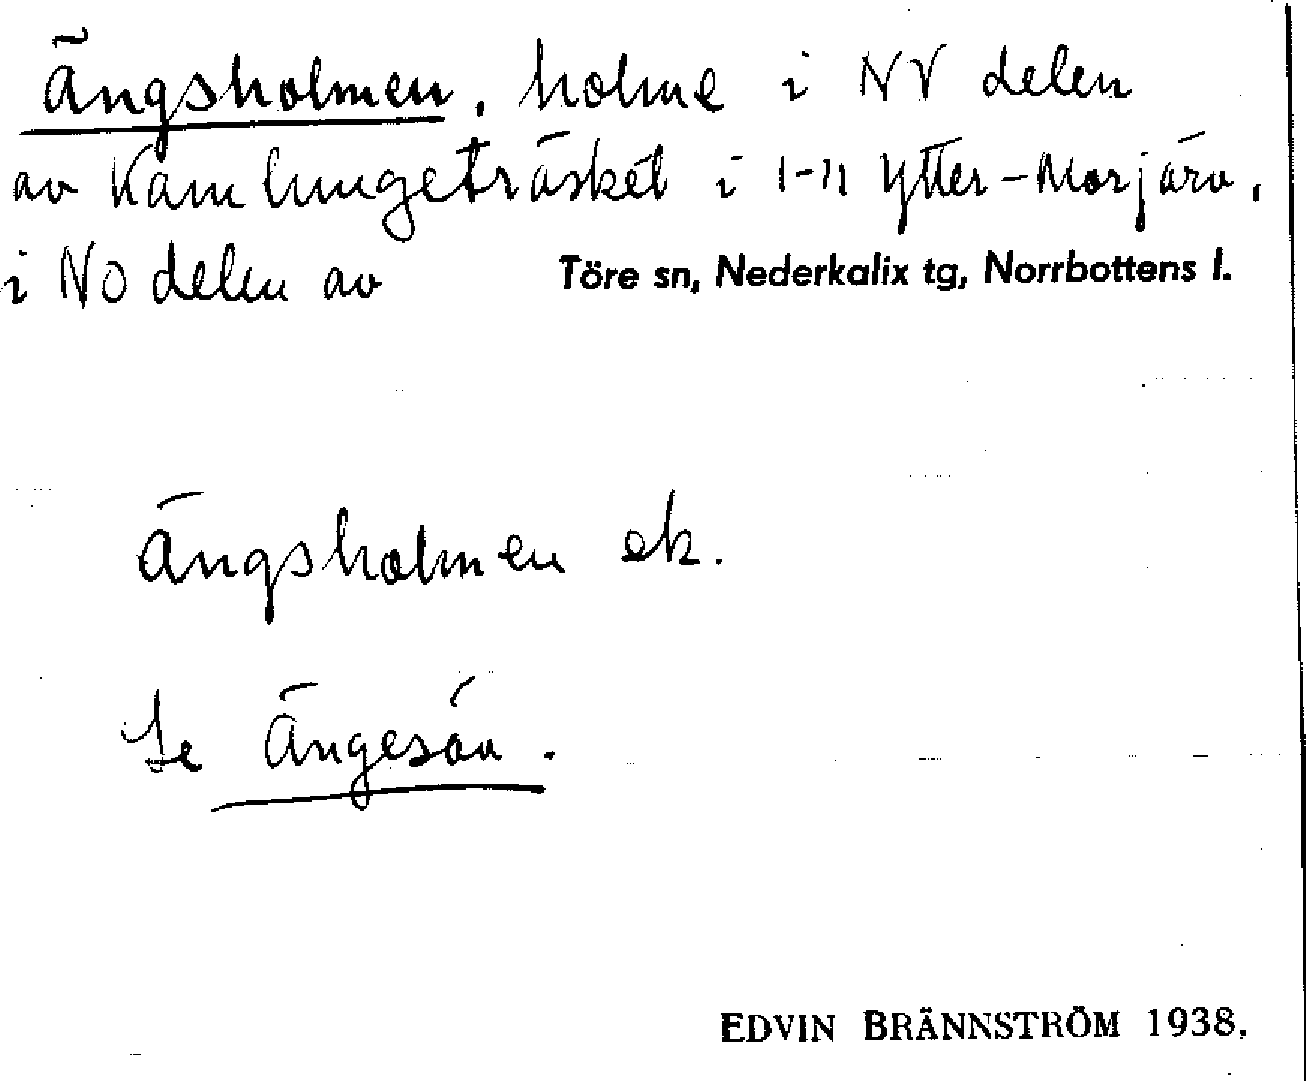 Ängsholmen, holme i NV delen
av Kamlungeträsket i 1-11 Ytter-Morjärv,
i NO delen av Töre sn, Nederkalix tg, Norrbottens l.
Ängsholmen ek.
Se Ängesån.
EDVIN BRÄNNSTRÖM 1938.